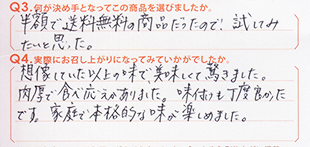 Q3.何が決め手となってこの商品を選びましたか。
半額で送料無料の商品だったので、試してみ
たいと思った。
Q4.実際にお召し上がりになってみていかがでしたか。
想像していた以上の味で、美味しくて驚きました。
肉厚で食べ応えがありました。味付けも丁度良かった
です。家庭で本格的な味が楽しめました。